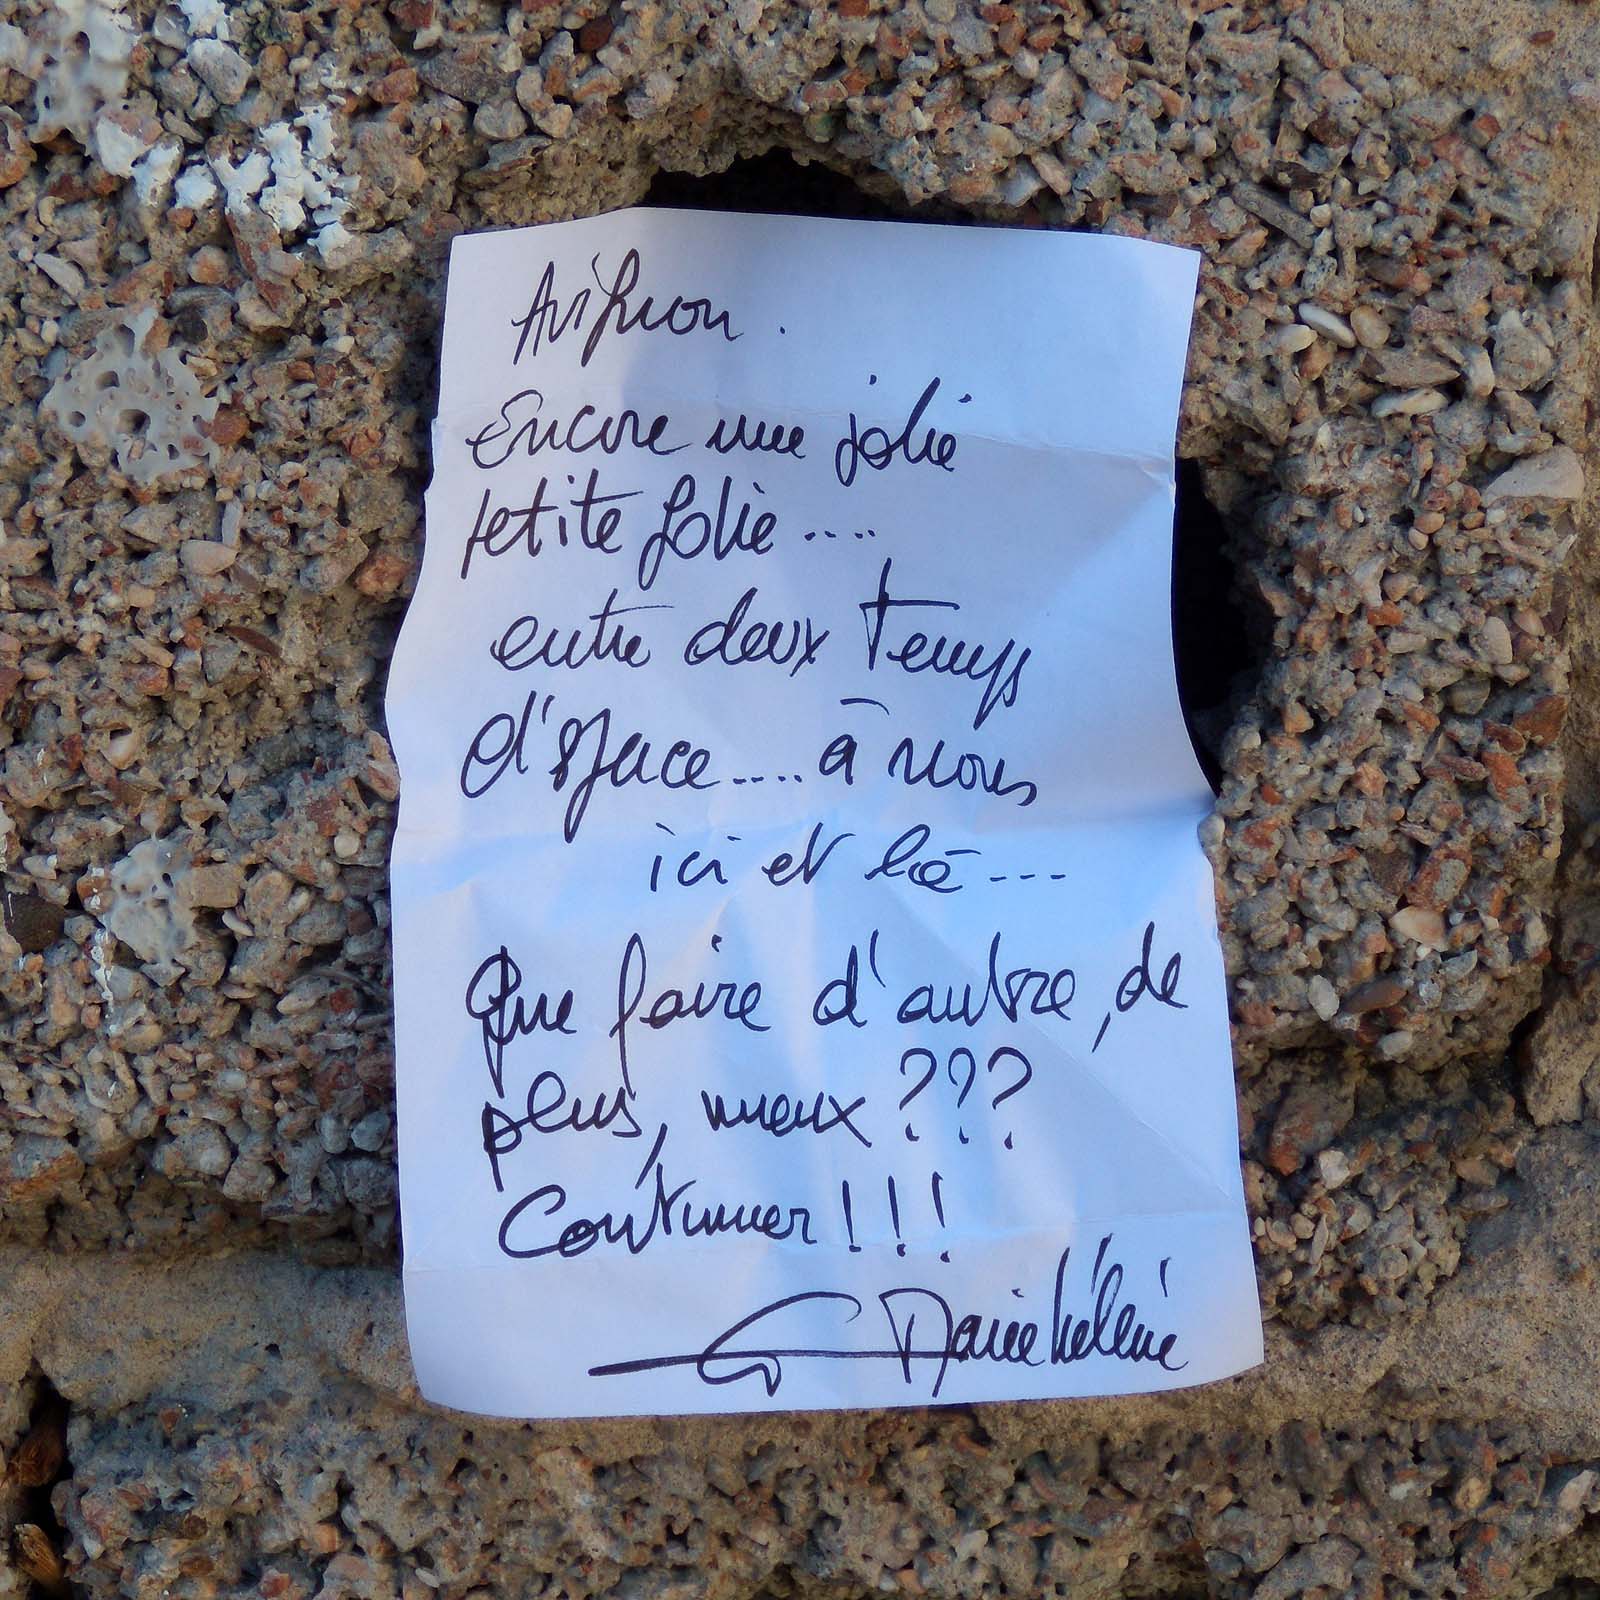 Avignon.
Encore une jolie
petite folie....
entre deux Temps
d'espace.... à nous
ici et là...
Que faire d'autre, de
plus, mieux ???
Continuer !!!
Marie hélène